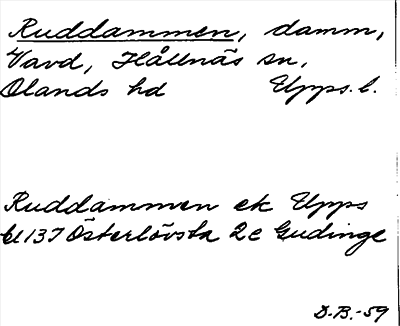 Ruddammen, damm,
Vavd, Hållnäs sn,
Olands hd Upps. l.
Ruddammen ek Upps
bl 137 Österlövsta 2c Gudinge
D.B.-59